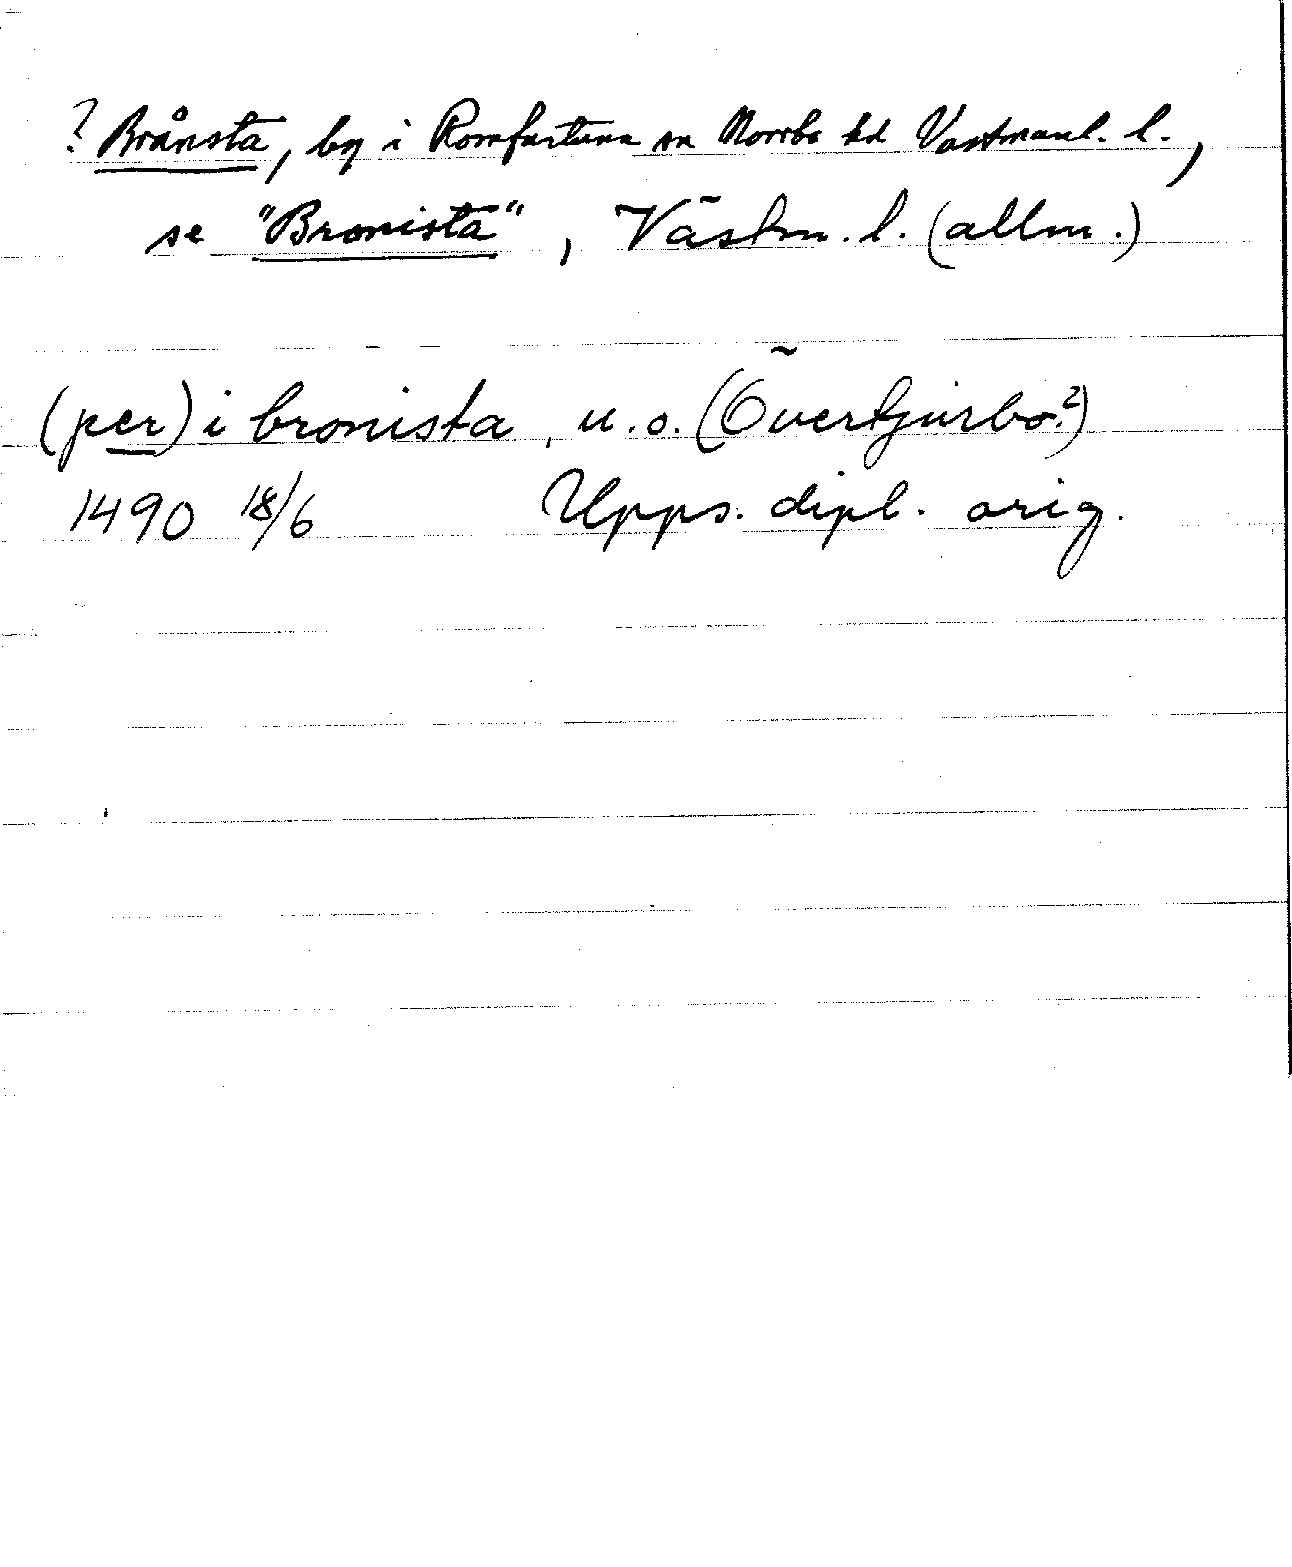 ? Brånsta, by i Romfartuna sn Norrbo hd Västmanl. l.,
se "Bronista", Västm. l. (allm.)
(per) i bronista, u.s. (Övertjurbo?)
1490 18/6 Upps. dipl. orig.